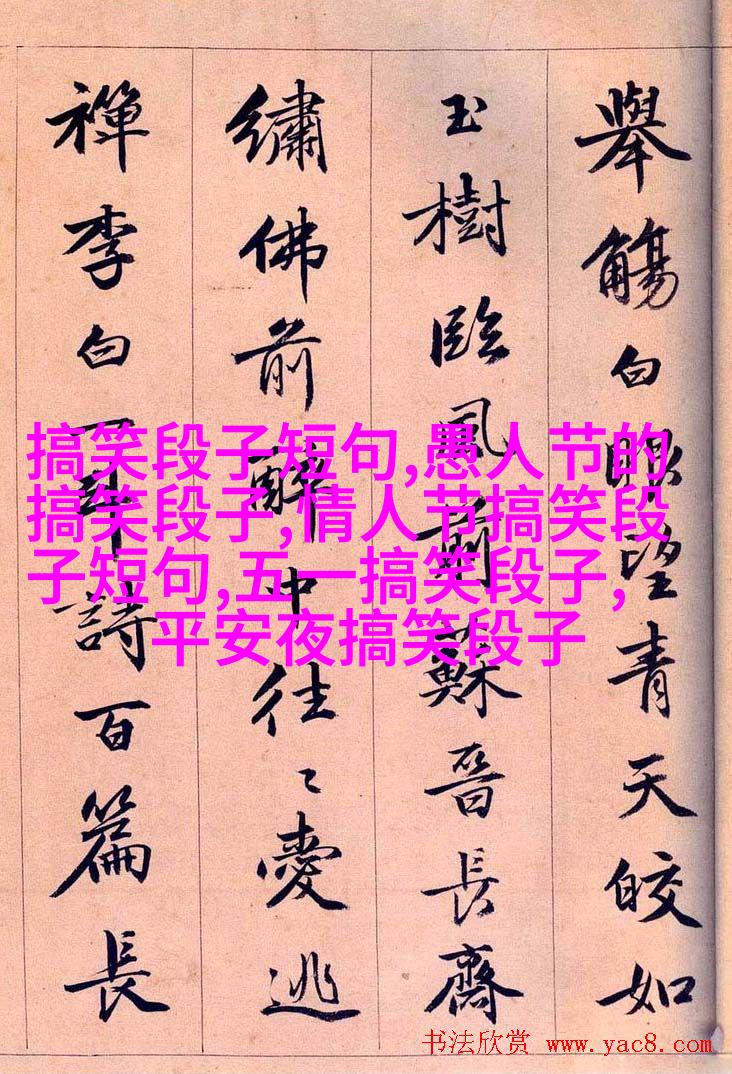 舉觴白眼望青天皎如
玉樹臨風前蘇晉長齋
繡佛前醉中往〻愛逃
禪李白一斗詩百篇長
搞笑段子短句,愚人节的
搞笑段子,情人节搞笑段
子短句,五一搞笑段子,
平安夜搞笑段子
书法欣赏 www.yac8.com